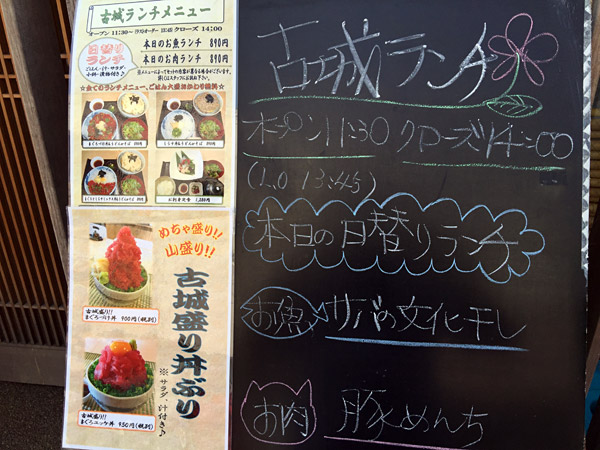 古城ランチメニュー
オープン 11:30~ ラストオーダー 13:45 クローズ 14:00
日替り
ランチ
ごはん・汁・サラダ、
小鉢・漬物付き♪
本日のお魚ランチ 890円
本日のお肉ランチ 890円
★全てのランチメニュー、ごはん大盛おかわり無料★
めちゃ盛り!!
山盛り!!
古城盛り丼ぶり
※サラダ、汁付き♪
古城盛り!!
まぐろづけ丼 900円(税別)
古城盛り!!
まぐろユッケ丼 950円(税別)
古城ランチ
オープン 11:30 クローズ 14:00
(L.O 13:45)
本日の日替りランチ
お魚 サバの文化干し
お肉 豚めんち